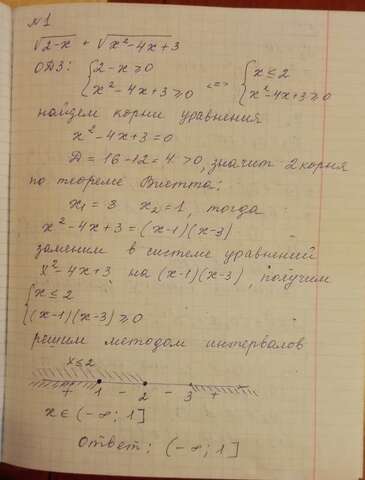 №1
√2-x + √x²-4x+3
ОДЗ: { 2-x ≥ 0 <=> { x ≤ 2
x²-4x+3 ≥ 0 x²-4x+3 ≥ 0
найдем корни уравнения
x²-4x+3=0
Д = 16-12=4 >0, значит 2 корня
по теореме Виетта:
x₁ = 3 x₂=1, тогда
x²-4x+3 = (x-1)(x-3)
заменим в системе уравнений
x²-4x+3 на (x-1)(x-3), получим
{ x ≤ 2
(x-1)(x-3) ≥ 0
решим методом интервалов
x≤2
+ 1 - 2 - 3 +
x ∈ (-∞; 1]
Ответ: (-∞; 1]